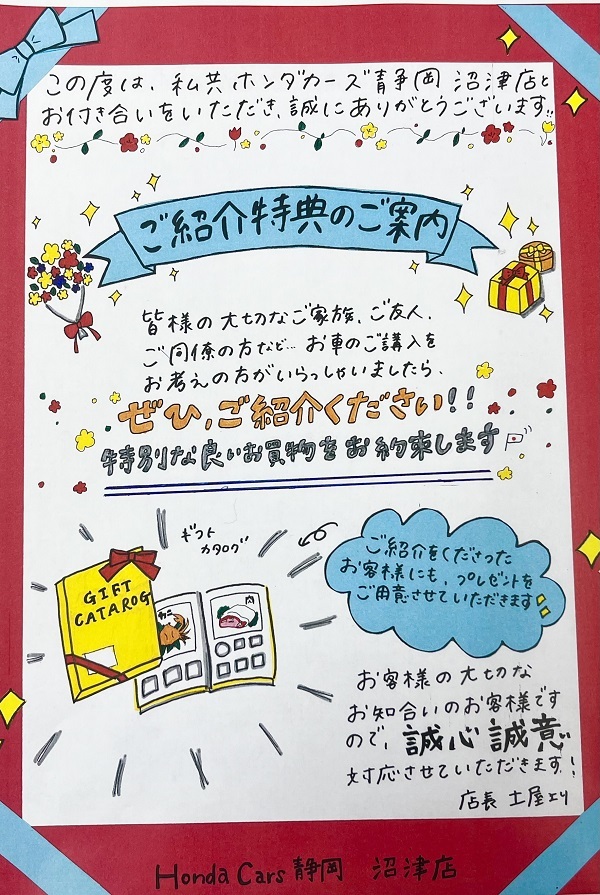 この度は、私共ホンダカーズ静岡 沼津店と
お付き合いをいただき、誠にありがとうございます!!
ご紹介特典のご案内
皆様の大切なご家族、ご友人、
ご同僚の方など… お車のご購入を
お考えの方がいらっしゃいましたら、
ぜひ、ご紹介ください!!
特別な良いお買物をお約束します
ギフト
カタログ
GIFT
CATAROG
カニ
肉
ご紹介をくださった
お客様にも、プレゼントを
ご用意させていただきます
お客様の大切な
お知合いのお客様です
ので、誠心誠意
対応させていただきます!
店長 土屋エリ
Honda Cars 静岡 沼津店